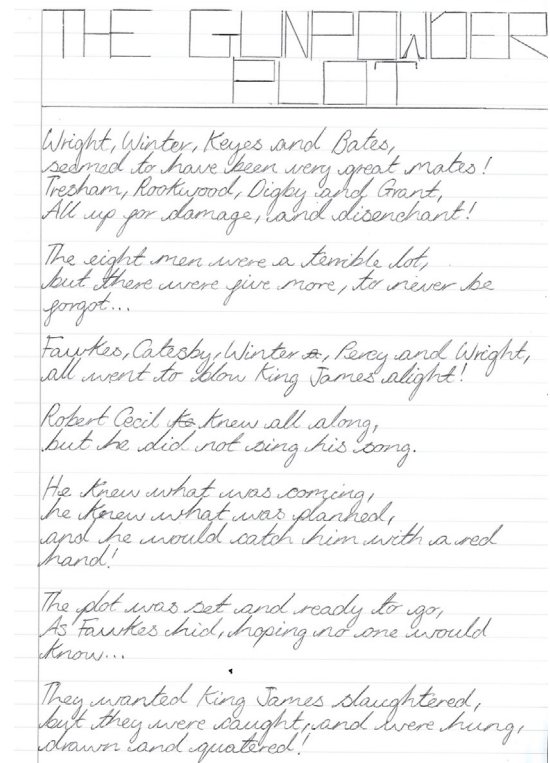 THE GUNPOWDER
PLOT
Wright, Winter, Keyes and Bates,
seemed to have been very great mates!
Tresham, Rookwood, Digby and Grant,
All up for damage, and disenchant!
The eight men were a terrible lot,
but there were five more, to never be
forgot...
Fawkes, Catesby, Winter, Percy and Wright,
all went to blow King James alight!
Robert Cecil knew all along,
but he did not sing his song.
He knew what was coming,
he knew what was planned,
and he would catch him with a red
hand!
The plot was set and ready to go,
As Fawkes hid, hoping no one would
know...
They wanted King James slaughtered,
but they were caught, and were hung,
drawn and quatered!